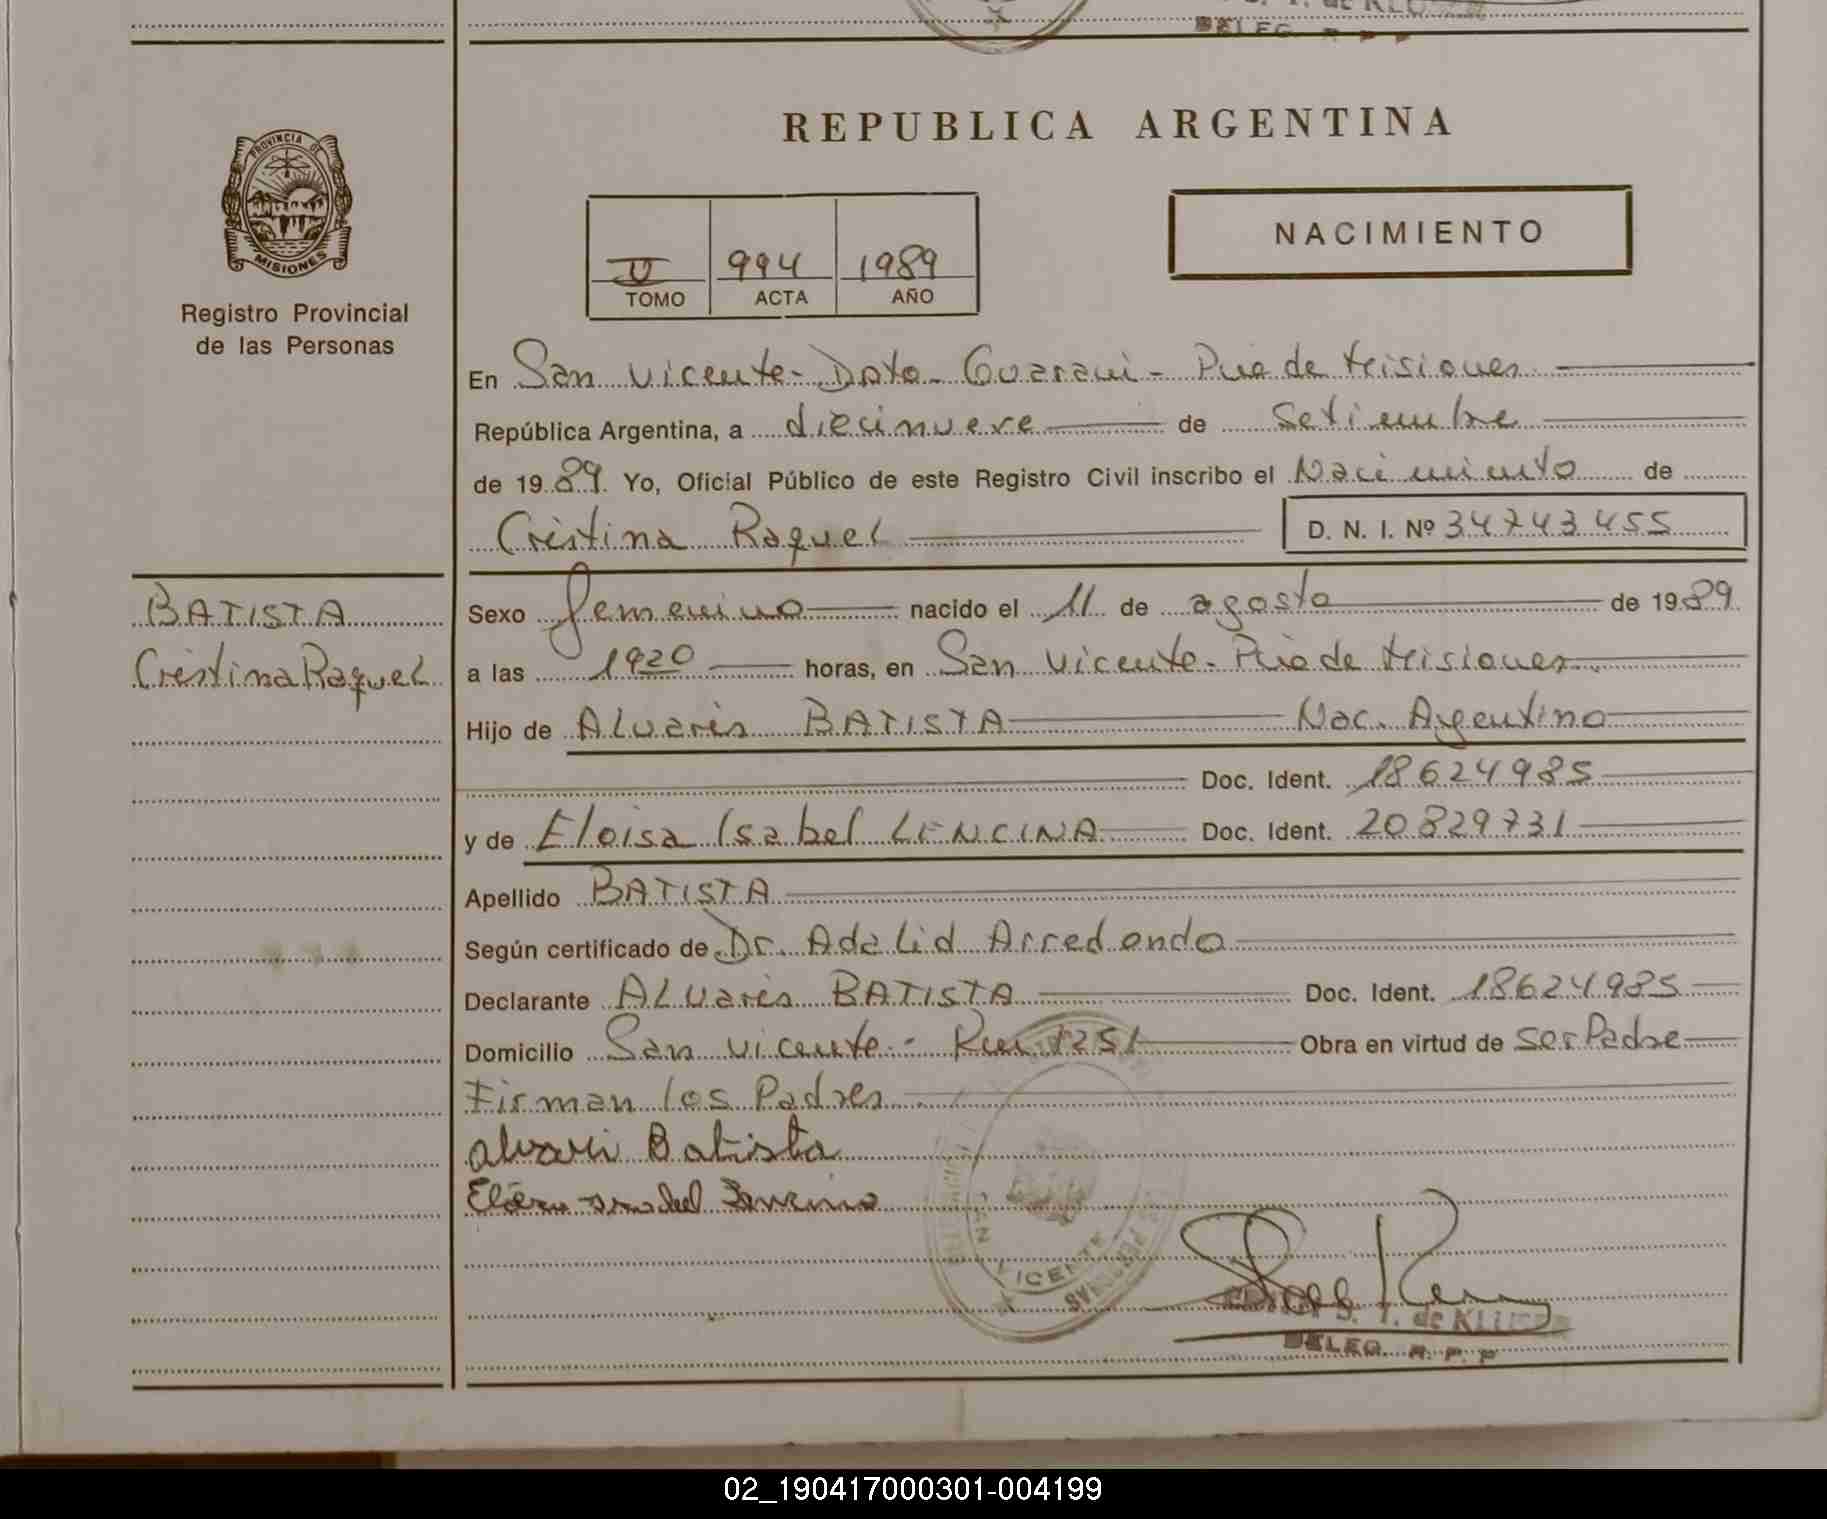 DELEG. R P P
REPUBLICA ARGENTINA
PROVINCIA DE
MISIONES
Registro Provincial
de las Personas
NACIMIENTO
V 994 1989
TOMO ACTA AÑO
En San Vicente - Dpto - Guaraní - Pcia de Misiones
República Argentina, a diecinueve de Setiembre
de 1989. Yo, Oficial Público de este Registro Civil inscribo el Nacimiento de
Cristina Raquel D. N. I. Nº 34743455
BATISTA
Cristina Raquel
Sexo femenino nacido el 11 de agosto de 1989
a las 1920 horas, en San Vicente - Pcia de Misiones
Hijo de Alvaris BATISTA Nac. Argentino
Doc. Ident. 18624985
y de Eloisa Isabel LENCINA Doc. Ident. 20829731
Apellido BATISTA
Según certificado de Dr. Adalid Arredondo
Declarante Alvaris BATISTA Doc. Ident. 18624985
Domicilio San Vicente - Km 1251 Obra en virtud de ser Padre
Firman los Padres
alvari Batista
SAN VICENTE
PERSONAS
S. T. de
DELEG. R. P. P
02_190417000301-004199